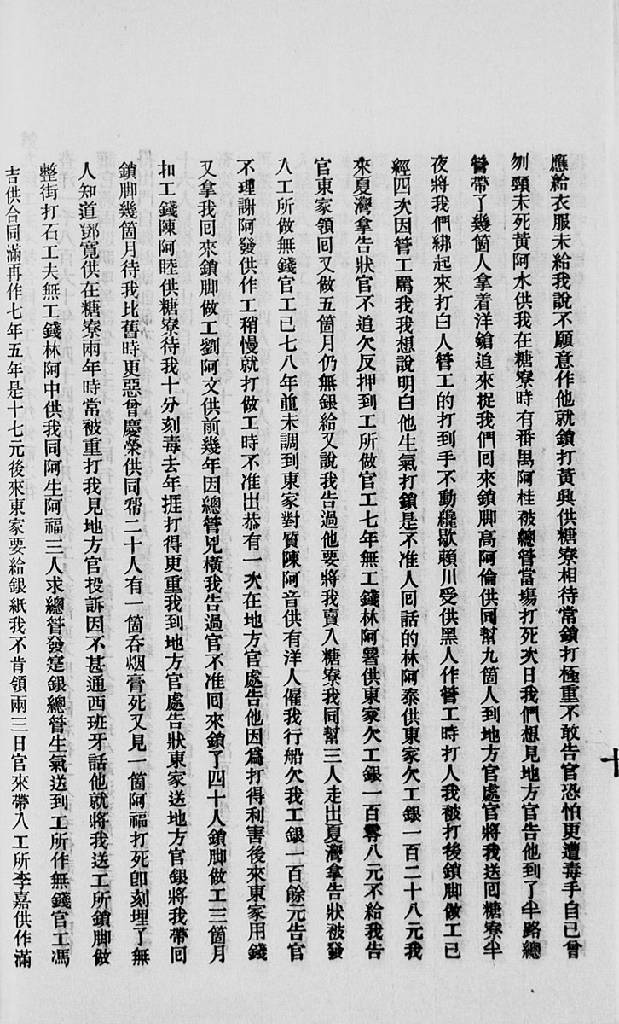 應給衣服未給我說不願意作他就鎖打黃興供糖寮相待常鎖打極重不敢告官恐怕更遭毒手自己曾
刎頸未死黃阿水供我在糖寮時有番禺阿桂被總管當塲打死次日我們想見地方官告他到了半路總
管帶了幾箇人拿着洋鎗追來捉我們回來鎖脚高阿倫供同幫九箇人到地方官處官將我送回糖寮半
夜將我們綁起來打白人管工的打到手不動纔歇賴川受供黑人作管工時打人我被打後鎖脚做工已
經四次因管工罵我我想說明白他生氣打鎖是不准人回話的林阿泰供東家欠工銀一百二十八元我
來夏灣拿告狀官不追欠反押到工所做官工七年無工錢林阿署供東家欠工銀一百零八元不給我告
官東家領回又做五箇月仍無銀給又說我告過他要將我賣入糖寮我同幫三人走出夏灣拿告狀被發
入工所做無錢官工已七八年並未調到東家對質陳阿音供有洋人僱我行船欠我工銀一百餘元告官
不理謝阿發供作工稍慢就打做工時不准出恭有一次在地方官處告他因爲打得利害後來東家用錢
又拿我回來鎖脚做工劉阿文供前幾年因總管兇橫我告過官不准回來鎖了四十人鎖脚做工三箇月
扣工錢陳阿睦供糖寮待我十分刻毒去年捱打得更重我到地方官處告狀東家送地方官銀將我帶回
鎖脚幾箇月待我比舊時更惡曾慶榮供同幫二十人有一箇吞烟膏死又見一箇阿福打死卽刻埋了無
人知道鄧寬供在糖寮兩年時常被重打我見地方官投訴因不甚通西班牙話他就將我送工所鎖脚做
整街打石工夫無工錢林阿中供我同阿生阿福三人求總管發寔銀總管生氣送到工所作無錢官工馮
吉供合同滿再作七年五年是十七元後來東家要給銀紙我不肯領兩三日官來帶入工所李嘉供作滿
十